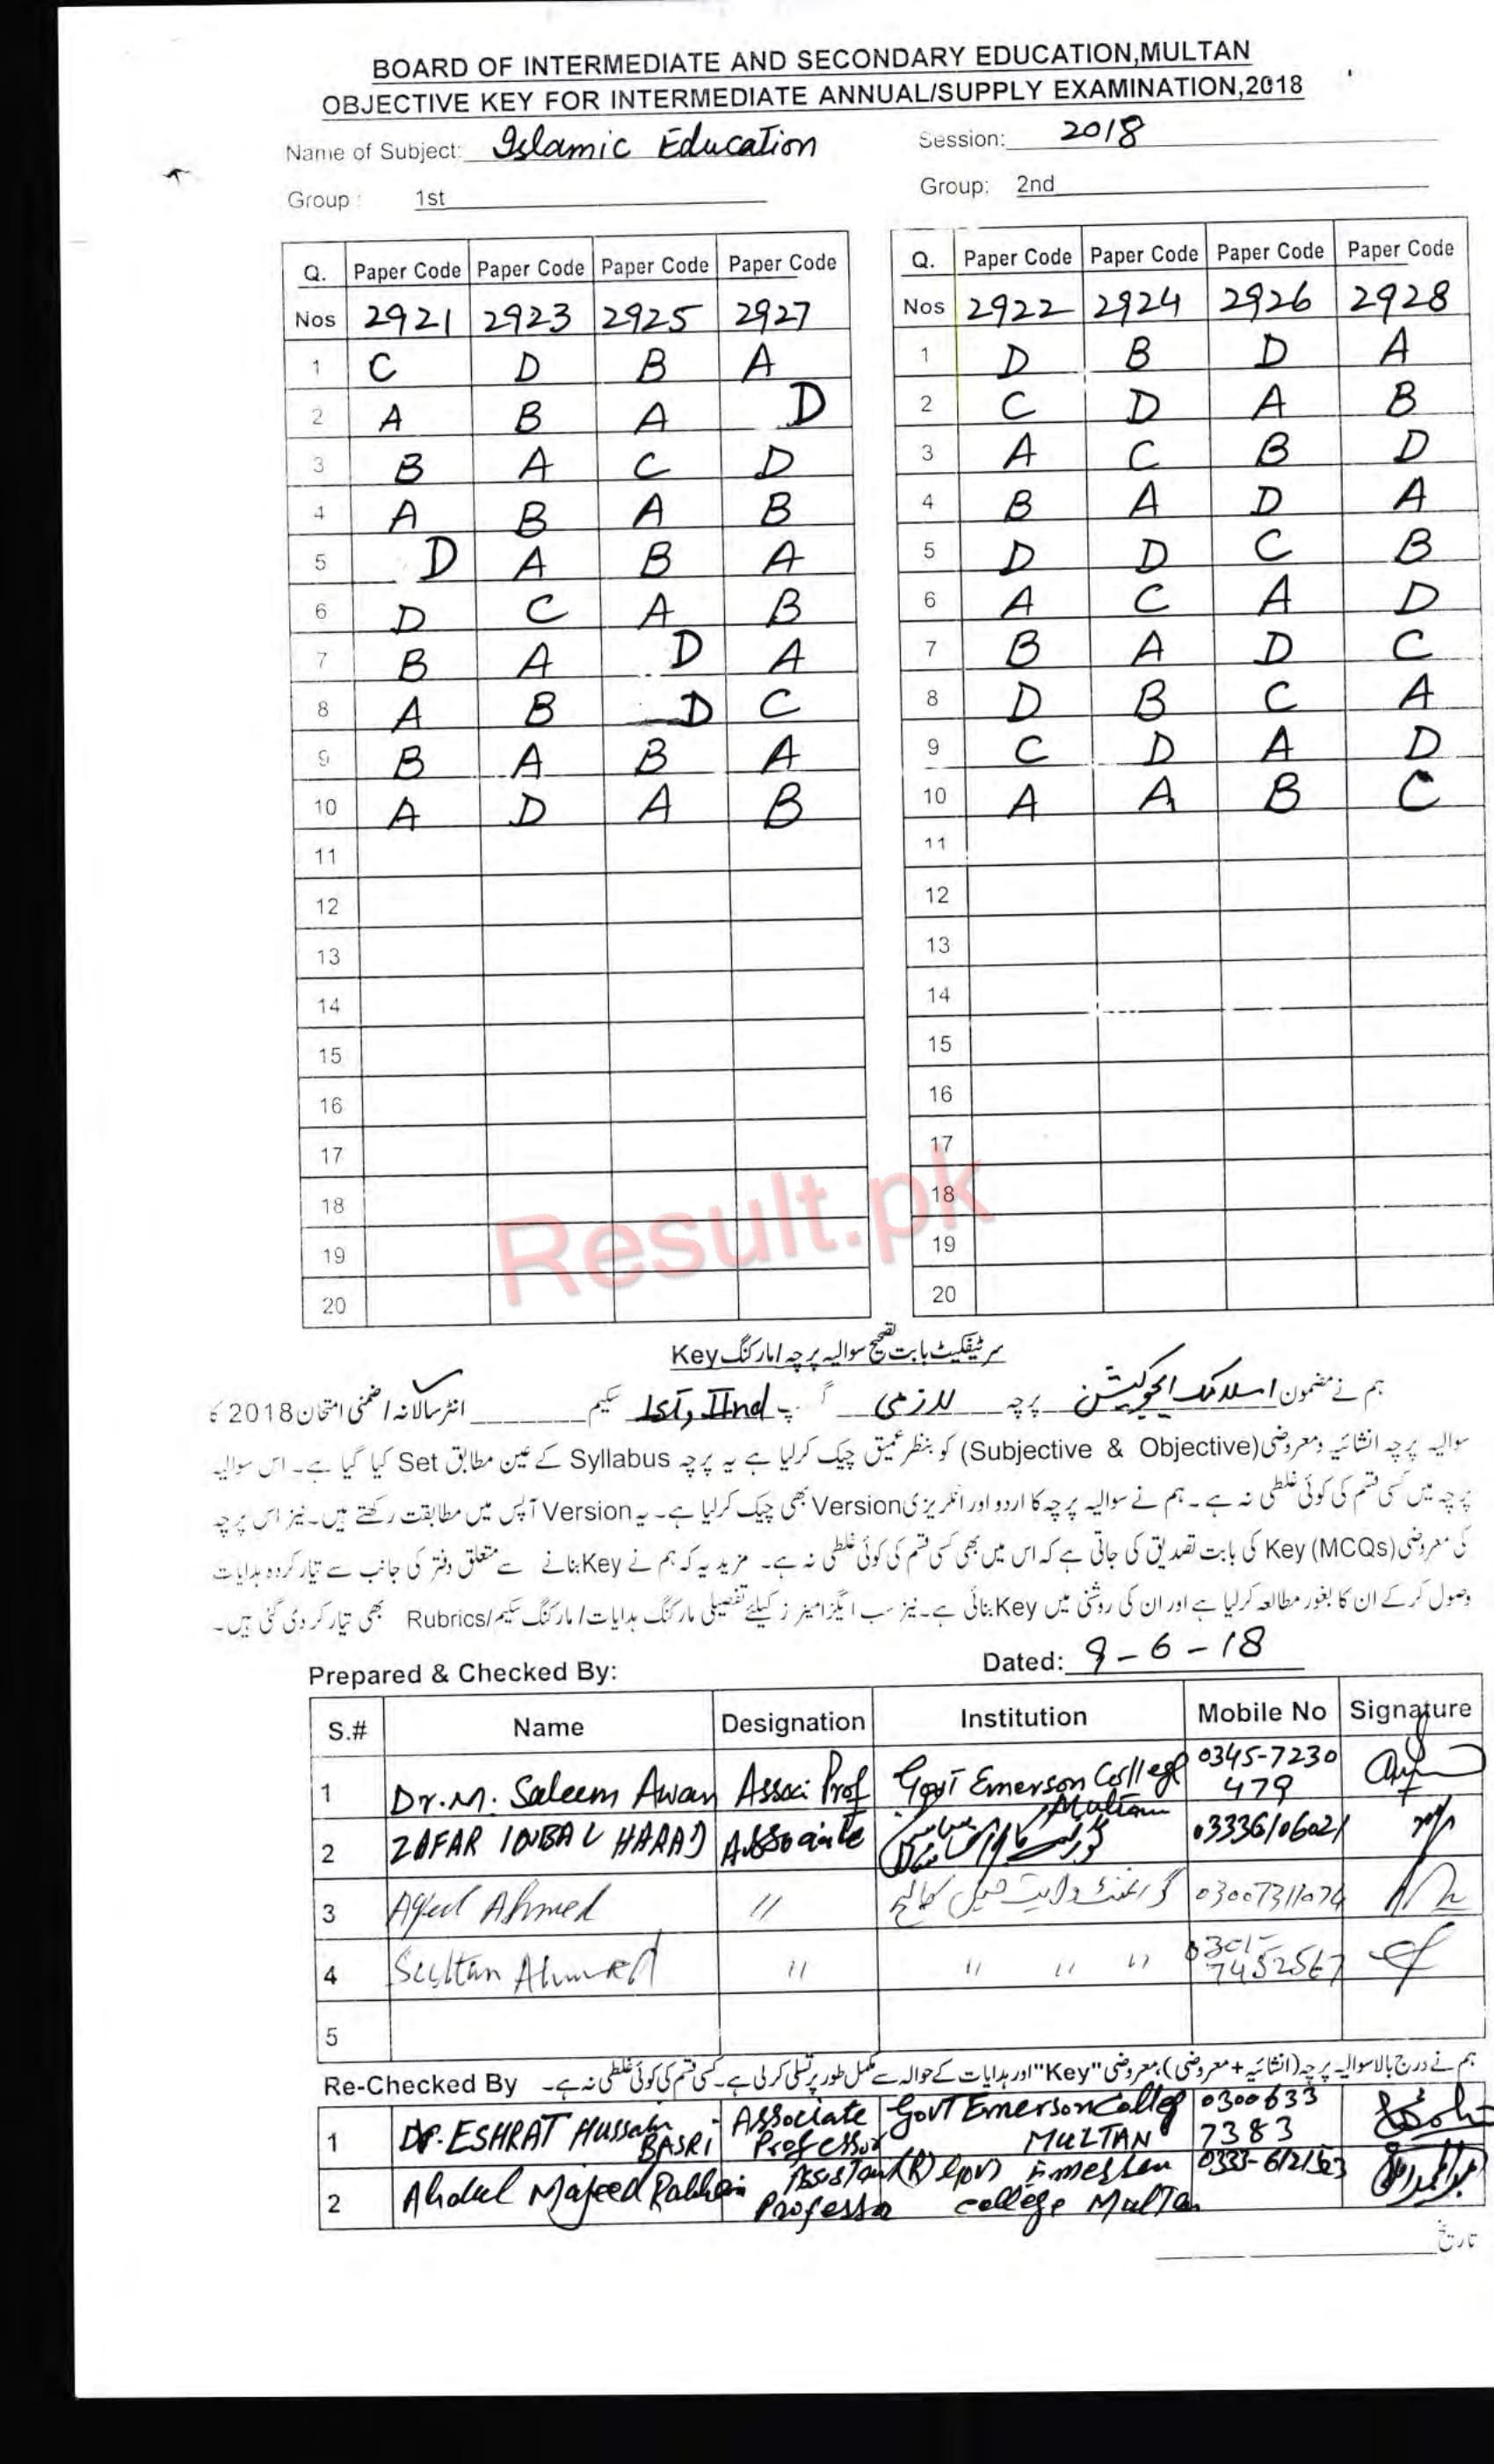 BOARD OF INTERMEDIATE AND SECONDARY EDUCATION,MULTAN
OBJECTIVE KEY FOR INTERMEDIATE ANNUAL/SUPPLY EXAMINATION,2018
Name of Subject: Islamic Education Session: 2018
Group : 1st Group: 2nd
Q. Paper Code Paper Code Paper Code Paper Code Q. Paper Code Paper Code Paper Code Paper Code
Nos 2921 2923 2925 2927 Nos 2922 2924 2926 2928
1 C D B A 1 D B D A
2 A B A D 2 C D A B
3 B A C D 3 A C B D
4 A B A B 4 B A D A
5 D A B A 5 D D C B
6 D C A B 6 A C A D
7 B A D A 7 B A D C
8 A B D C 8 D B C A
9 B A B A 9 C D A D
10 A D A B 10 A A B C
11 11
12 12
13 13
14 14
15 15
16 16
17 17
18 18
19 19
20 20
Result.pk
سرٹیفکیٹ بابت تصحیح سوالیہ پرچہ/مارکنگ Key
ہم نے مضمون اسلامک ایجوکیشن پرچہ لازمی گروپ Ist, IInd سکیم انٹرسالانہ/ضمنی امتحان 2018 کا
سوالیہ پرچہ انشائیہ ومعروضی (Subjective & Objective) کو بنظر عمیق چیک کرلیا ہے یہ پرچہ Syllabus کے عین مطابق Set کیا گیا ہے۔ اس سوالیہ
پرچہ میں کسی قسم کی کوئی غلطی نہ ہے۔ ہم نے سوالیہ پرچہ کا اردو اور انگریزی Version بھی چیک کرلیا ہے۔ یہ Version آپس میں مطابقت رکھتے ہیں۔ نیز اس پرچہ
کی معروضی (MCQs) Key کی بابت تصدیق کی جاتی ہے کہ اس میں بھی کسی قسم کی کوئی غلطی نہ ہے۔ مزید یہ کہ ہم نے Key بنانے سے متعلق دفتر کی جانب سے تیار کردہ ہدایات
وصول کر کے ان کا بغور مطالعہ کرلیا ہے اور ان کی روشنی میں Key بنائی ہے۔ نیز سب ایگزامینرز کیلئے تفصیلی مارکنگ ہدایات/مارکنگ سکیم/Rubrics بھی تیار کر دی گئی ہیں۔
Prepared & Checked By: Dated: 9-6-18
S.# Name Designation Institution Mobile No Signature
1 Dr.M. Saleem Awan Assoc: Prof Govt Emerson College Multan 0345-7230 479
2 ZAFAR IQBAL HARAJ Associate 03336106021
3 Aqeel Ahmed " گورنمنٹ ولایت حسین کالج 03007311074
4 Sultan Ahmed " " " " 0301-7452567
5
Re-Checked By ہم نے درج بالا سوالیہ پرچہ (انشائیہ + معروضی)، معروضی "Key" اور ہدایات کے حوالہ سے مکمل طور پر تسلی کر لی ہے۔ کسی قسم کی کوئی غلطی نہ ہے۔
1 Dr. ESHRAT Hussain BASRI Associate Professor Govt Emerson College MULTAN 0300633 7383
2 Abdul Majeed Assistant Professor (R) Govt Emerson college Multan
تاریخ